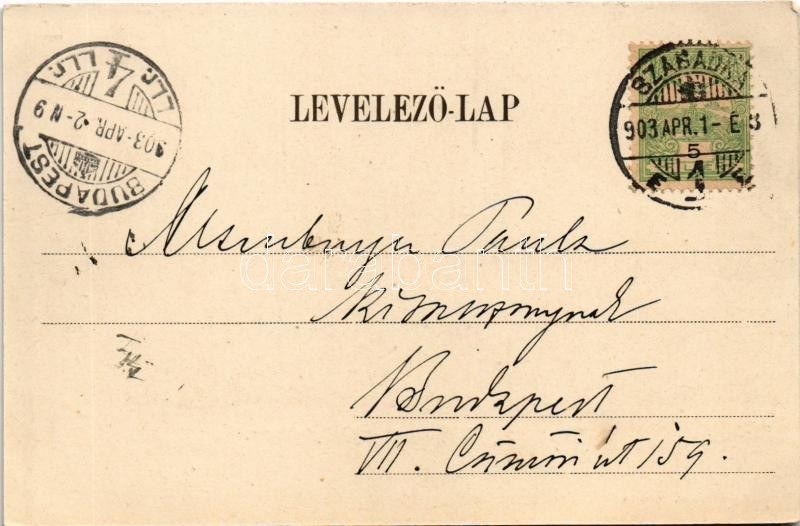 LEVELEZŐ-LAP
BUDAPEST
903·APR. 2-N 9
SZABADKA
903 APR. 1 - É 8
5
1
Altenburger Paula
kisasszonynak
Budapest
VII. Csömöri út 159.
darabanth